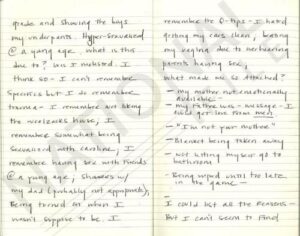 grade and showing the boys
my underpants. Hyper-sexualized
@ a young age. What is this
due to? Was I molested. I
think so - I can't remember
specifics but I do remember
trauma - I remember not liking
the house, I
remember somewhat being
sexualized with Caroline, I
remember having sex with friends
@ a young age; showers w/
my dad (probably not appropriate).
Being turned on when I
wasn't suppose to be. I
remember the Q-tips - I hated
getting my ears clean, beating
my due to overhearing
parents having sex,
What made me so attached?
- my mother not emotionally
available -
- my father was - message - I
must get love from men
- "I'm not your mother"
- Blanket being taken away
- not letting myself go to
bathroom
- Being moped until too late
in the game -
-
I could list all the reasons -
But I can't seem to find